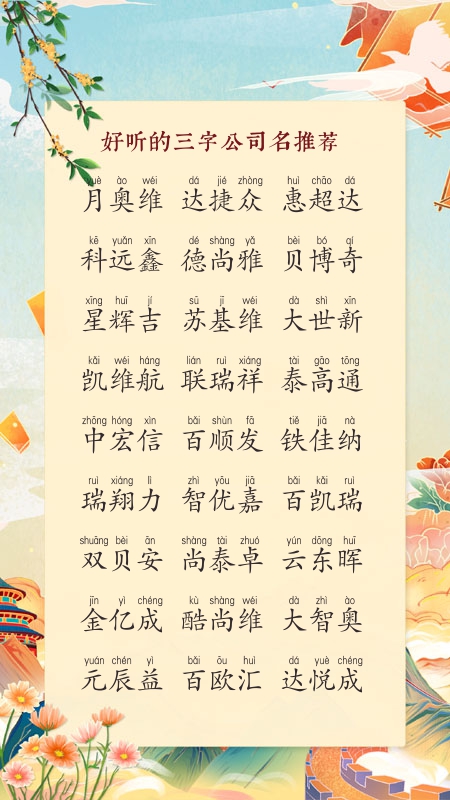 好听的三字公司名推荐
yuè ào wéi dá jié zhòng huì chāo dá
月奥维 达捷众 惠超达
kē yuǎn xīn dé shàng yǎ bèi bó qí
科远鑫 德尚雅 贝博奇
xīng huī jí sū jī wéi dà shì xīn
星辉吉 苏基维 大世新
kǎi wéi háng lián ruì xiáng tài gāo tōng
凯维航 联瑞祥 泰高通
zhōng hóng xìn bǎi shùn fā tiě jiā nà
中宏信 百顺发 铁佳纳
ruì xiáng lì zhì yōu jiā bǎi kǎi ruì
瑞翔力 智优嘉 百凯瑞
shuāng bèi ān shàng tài zhuó yún dōng huī
双贝安 尚泰卓 云东晖
jīn yì chéng kù shàng wéi dà zhì ào
金亿成 酷尚维 大智奥
yuán chén yì bǎi ōu huì dá yuè chéng
元辰益 百欧汇 达悦成